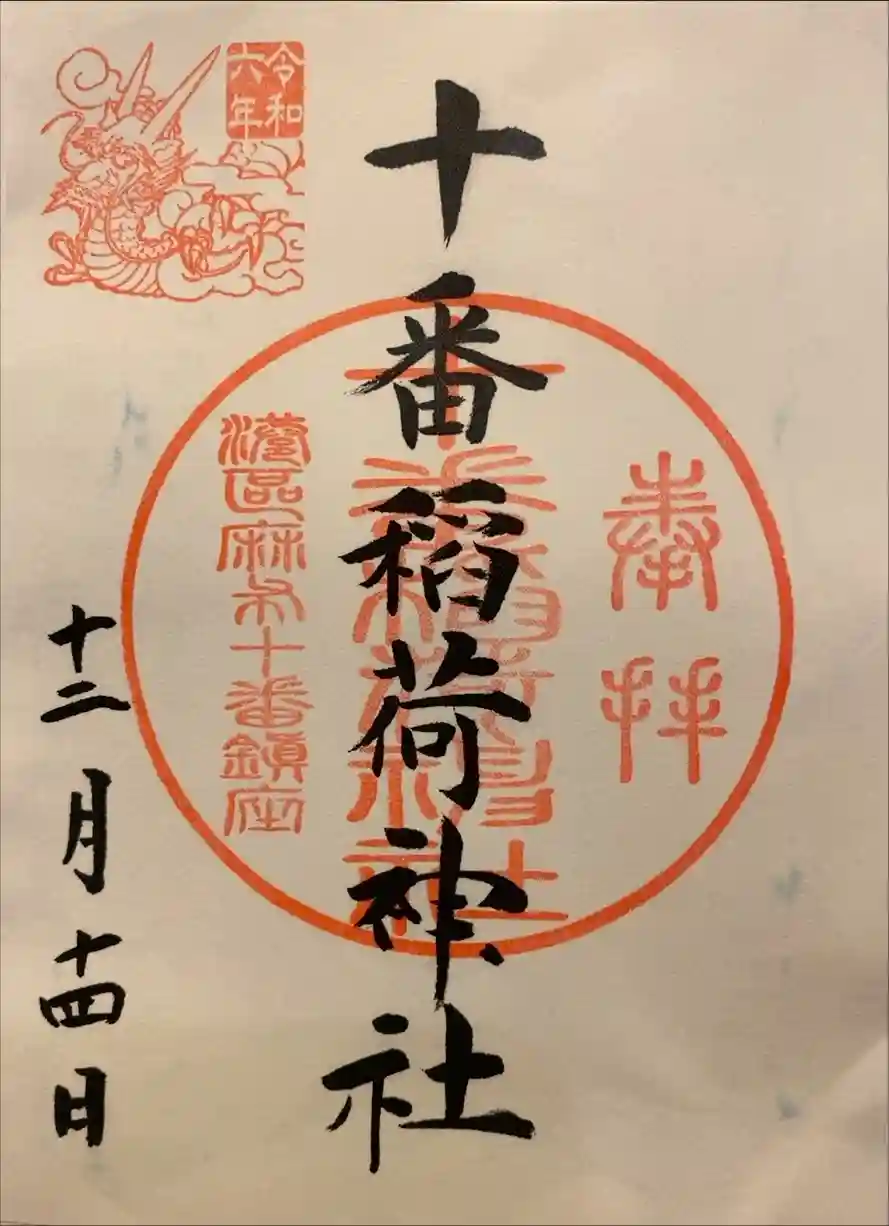 奉拝
十番稲荷神社
十番稲荷神社
港區麻布十番鎮座
令和六年
十二月十四日